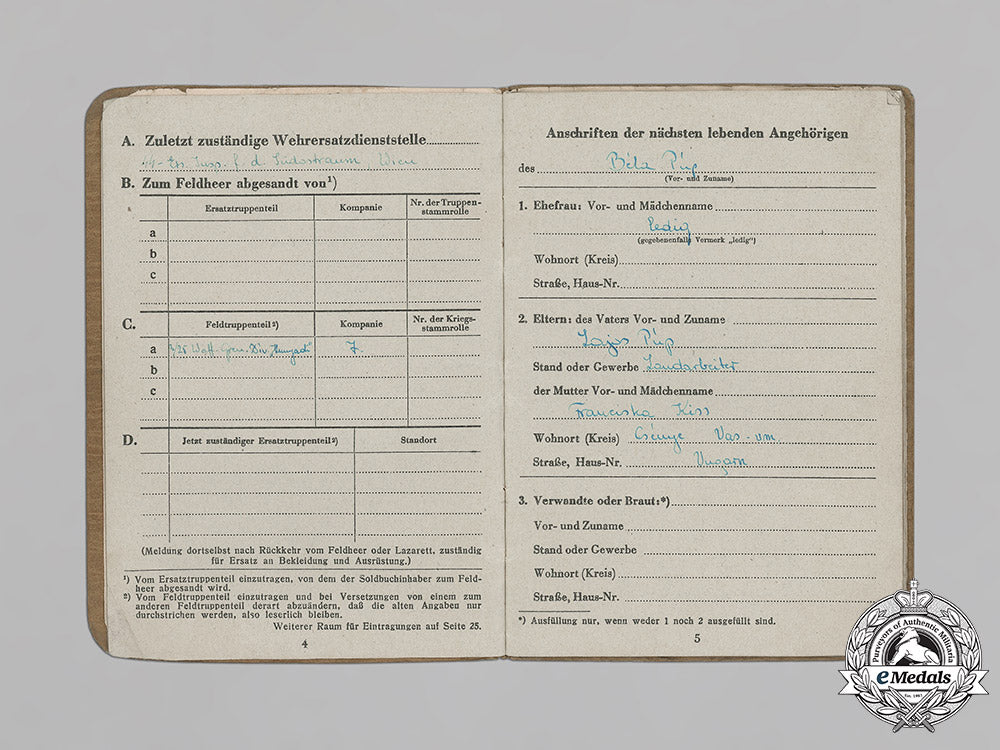 A. Zuletzt zuständige Wehrersatzdienststelle
f. d. Südostraum, Wien
B. Zum Feldheer abgesandt von¹)
Ersatztruppenteil Kompanie Nr. der Truppen-
stammrolle
a
b
c
C. Feldtruppenteil²) Kompanie Nr. der Kriegs-
stammrolle
a Waff. Gren. Div. 7.
b
c
D. Jetzt zuständiger Ersatztruppenteil²) Standort
(Meldung dortselbst nach Rückkehr vom Feldheer oder Lazarett, zuständig
für Ersatz an Bekleidung und Ausrüstung.)
¹) Vom Ersatztruppenteil einzutragen, von dem der Soldbuchinhaber zum Feld-
heer abgesandt wird.
²) Vom Feldtruppenteil einzutragen und bei Versetzungen von einem zum
anderen Feldtruppenteil derart abzuändern, daß die alten Angaben nur
durchstrichen werden, also leserlich bleiben.
Weiterer Raum für Eintragungen auf Seite 25.
4
Anschriften der nächsten lebenden Angehörigen
des Béla Púp
(Vor- und Zuname)
1. Ehefrau: Vor- und Mädchenname
ledig
(gegebenenfalls Vermerk „ledig“)
Wohnort (Kreis)
Straße, Haus-Nr.
2. Eltern: des Vaters Vor- und Zuname
Lajos Púp
Stand oder Gewerbe Landarbeiter
der Mutter Vor- und Mädchenname
Franciska Kiss
Wohnort (Kreis) Csénye Vas-vm.
Straße, Haus-Nr. Ungarn
3. Verwandte oder Braut:*)
Vor- und Zuname
Stand oder Gewerbe
Wohnort (Kreis)
Straße, Haus-Nr.
*) Ausfüllung nur, wenn weder 1 noch 2 ausgefüllt sind.
5
Purveyors of Authentic Militaria
eMedals